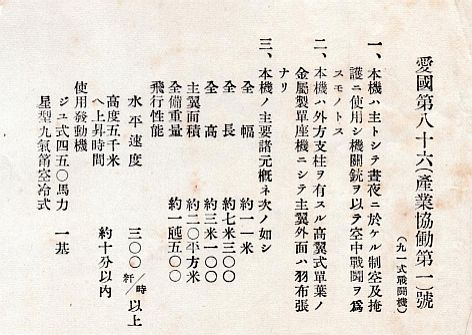 愛國第八十六(產業協働第一)號
(九一式戰鬪機)
一、本機ハ主トシテ晝夜ニ於ケル制空及掩
護ニ使用シ機關銃ヲ以テ空中戰鬪ヲ爲
スモノトス
二、本機ハ外方支柱ヲ有スル高翼式單葉ノ
金屬製單座機ニシテ主翼外面ハ羽布張
ナリ
三、本機ノ主要諸元槪ネ次ノ如シ
全幅 約一一米
全長 約七米三〇〇
全高 約三米一〇〇
主翼面積 約二〇平方米
全備重量 約一瓲五〇〇
飛行性能
水平速度 三〇〇粁/時以上
高度五千米
ヘ上昇時間 約十分以內
使用發動機
ジユ式四五〇馬力 一基
星型九氣筩空冷式